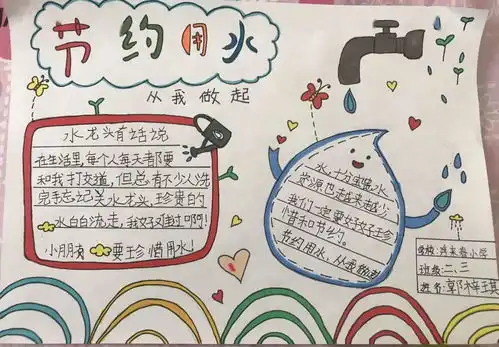 节约用水
从我做起
水龙头有话说
在生活里,每个人每天都要
和我打交道,但总有不少人洗
完手忘记关水龙头,珍贵的
水白白流走,我好难过啊!
小朋友要珍惜用水!
水,十分宝贵,水
资源也越来越少
我们一定要好好珍
惜和节约。
节约用水,从我做起
学校:
小学
班级:二、三
姓名:郭梓琪